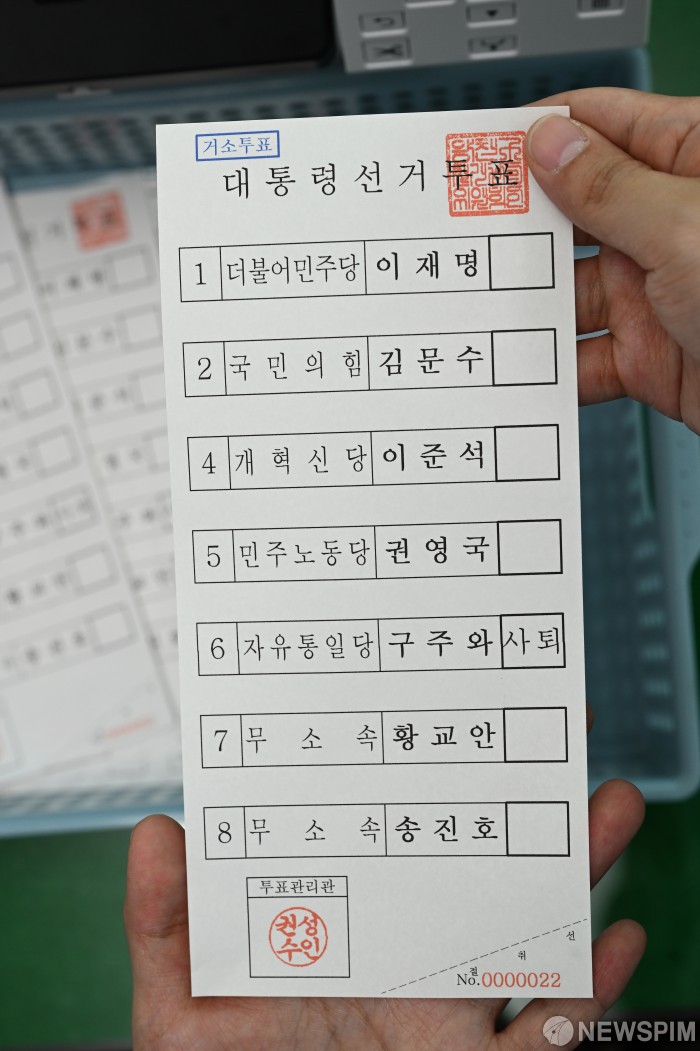 거소투표
대통령선거투표
1 더불어민주당 이재명
2 국민의힘 김문수
4 개혁신당 이준석
5 민주노동당 권영국
6 자유통일당 구주와 사퇴
7 무소속 황교안
8 무소속 송진호
투표관리관
권성
수인
절취선
No.0000022
NEWSPIM